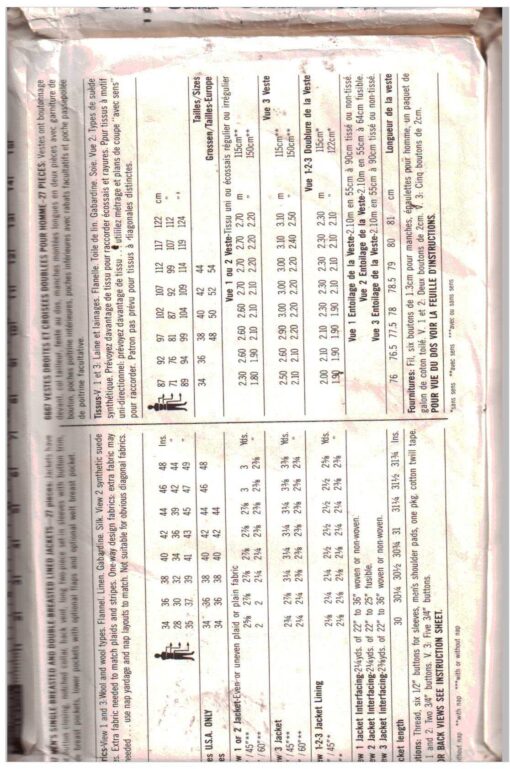 MEN'S SINGLE BREASTED AND DOUBLE BREASTED LINED JACKETS - 27 pieces: Jackets have
button fastening, notched collar, back vent, long two piece set-in sleeves with button trim,
breast pockets, lower pockets with optional flaps and optional welt breast pocket.
rics-View 1 and 3 Wool and wool types. Flannel. Linen. Gabardine. Silk. View 2 synthetic suede
es. Extra fabric needed to match plaids and stripes. One way design fabrics: extra fabric may
eeded ... use nap yardage and nap layouts to match. Not suitable for obvious diagonal fabrics.
34 36 38 40 42 44 46 48 Ins.
28 30 32 34 36 39 42 44 "
35 37 39 41 43 45 47 49 "
es U.S.A. ONLY 34 36 38 40 42 44 46 48
es 34 36 38 40 42 44
w 1 or 2 Jacket-Even or uneven plaid or plain fabric
/ 45"*** 2⅝ 2⅞ 2⅞ 2⅞ 2⅞ 2⅞ 3 3 Yds.
/ 60"*** 2 2 2¼ 2¼ 2⅜ 2⅜ 2⅜ 2⅜ "
w 3 Jacket
/ 45"*** 2¾ 2⅞ 3⅛ 3¼ 3¼ 3¼ 3⅜ 3⅜ Yds.
/ 60"*** 2¼ 2¼ 2¼ 2¼ 2⅜ 2⅜ 2⅝ 2¾ "
w 1-2-3 Jacket Lining
/ 45"* 2⅛ 2¼ 2¼ 2½ 2½ 2½ 2½ 2½ Yds.
w 1 Jacket Interfacing-2¼yds. of 22" to 36" woven or non-woven.
ew 2 Jacket Interfacing-2¼yds. of 22" to 25" fusible.
ew 3 Jacket Interfacing-2⅜yds. of 22" to 36" woven or non-woven.
cket length 30 30¼ 30½ 30¾ 31 31¼ 31½ 31¾ Ins.
otions: Thread, six 1/2" buttons for sleeves, men's shoulder pads, one pkg. cotton twill tape.
1 and 2: Two 3/4" buttons. V. 3: Five 3/4" buttons.
OR BACK VIEWS SEE INSTRUCTION SHEET.
without nap **with nap ***with or without nap
6667 VESTES DROITES ET CROISEES DOUBLEES POUR HOMME - 27 PIECES: Vestes ont boutonnage
devant, col tailleur, fente au dos, manches montées longues en deux pièces avec garniture de
bouton, poches poitrine intérieures, poches inférieures avec rabats facultatifs et poche passepoilée
de poitrine facultative.
Tissus-V. 1 et 3: Laine et lainages. Flanelle. Toile de lin. Gabardine. Soie. Vue 2. Types de suède
synthétique. Prévoyez davantage de tissu pour raccorder écossais et rayures. Pour tissus à motif
uni-directionnel: prévoyez davantage de tissu ... utilisez métrage et plans de coupe "avec sens"
pour raccorder. Patron pas prévu pour tissus à diagonales distinctes.
87 92 97 102 107 112 117 122 cm
71 76 81 87 92 99 107 112 "
89 94 99 104 109 114 119 124 "
34 36 38 40 42 44 Tailles/Sizes
48 50 52 54 Grossen/Tailles-Europe
Vue 1 ou 2 Veste-Tissu uni ou écossais régulier ou irrégulier
2.30 2.60 2.60 2.60 2.70 2.70 2.70 2.70 m 115cm**
1.80 1.90 2.10 2.10 2.10 2.20 2.20 2.20 " 150cm**
Vue 3 Veste
2.50 2.60 2.90 3.00 3.00 3.00 3.10 3.10 m 115cm**
2.10 2.10 2.10 2.10 2.20 2.20 2.40 2.50 " 150cm**
Vue 1-2-3 Doublure de la Veste
2.00 2.10 2.10 2.30 2.30 2.30 2.30 2.30 m 115cm*
1.90 1.90 1.90 1.90 1.90 2.10 2.10 2.10 " 122cm*
Vue 1 Entoilage de la Veste-2.10m en 55cm à 90cm tissé ou non-tissé.
Vue 2 Entoilage de la Veste-2.10m en 55cm à 64cm fusible.
Vue 3 Entoilage de la Veste-2.10m en 55cm à 90cm tissé ou non-tissé.
76 76.5 77.5 78 78.5 79 80 81 cm Longueur de la veste
Fournitures: Fil, six boutons de 1.3cm pour manches, épaulettes pour homme, un paquet de
galon de coton toilé. V. 1 et 2: Deux boutons de 2cm. V. 3: Cinq boutons de 2cm.
POUR VUE DU DOS VOIR LA FEUILLE D'INSTRUCTIONS.
*sans sens **avec sens ***avec ou sans sens